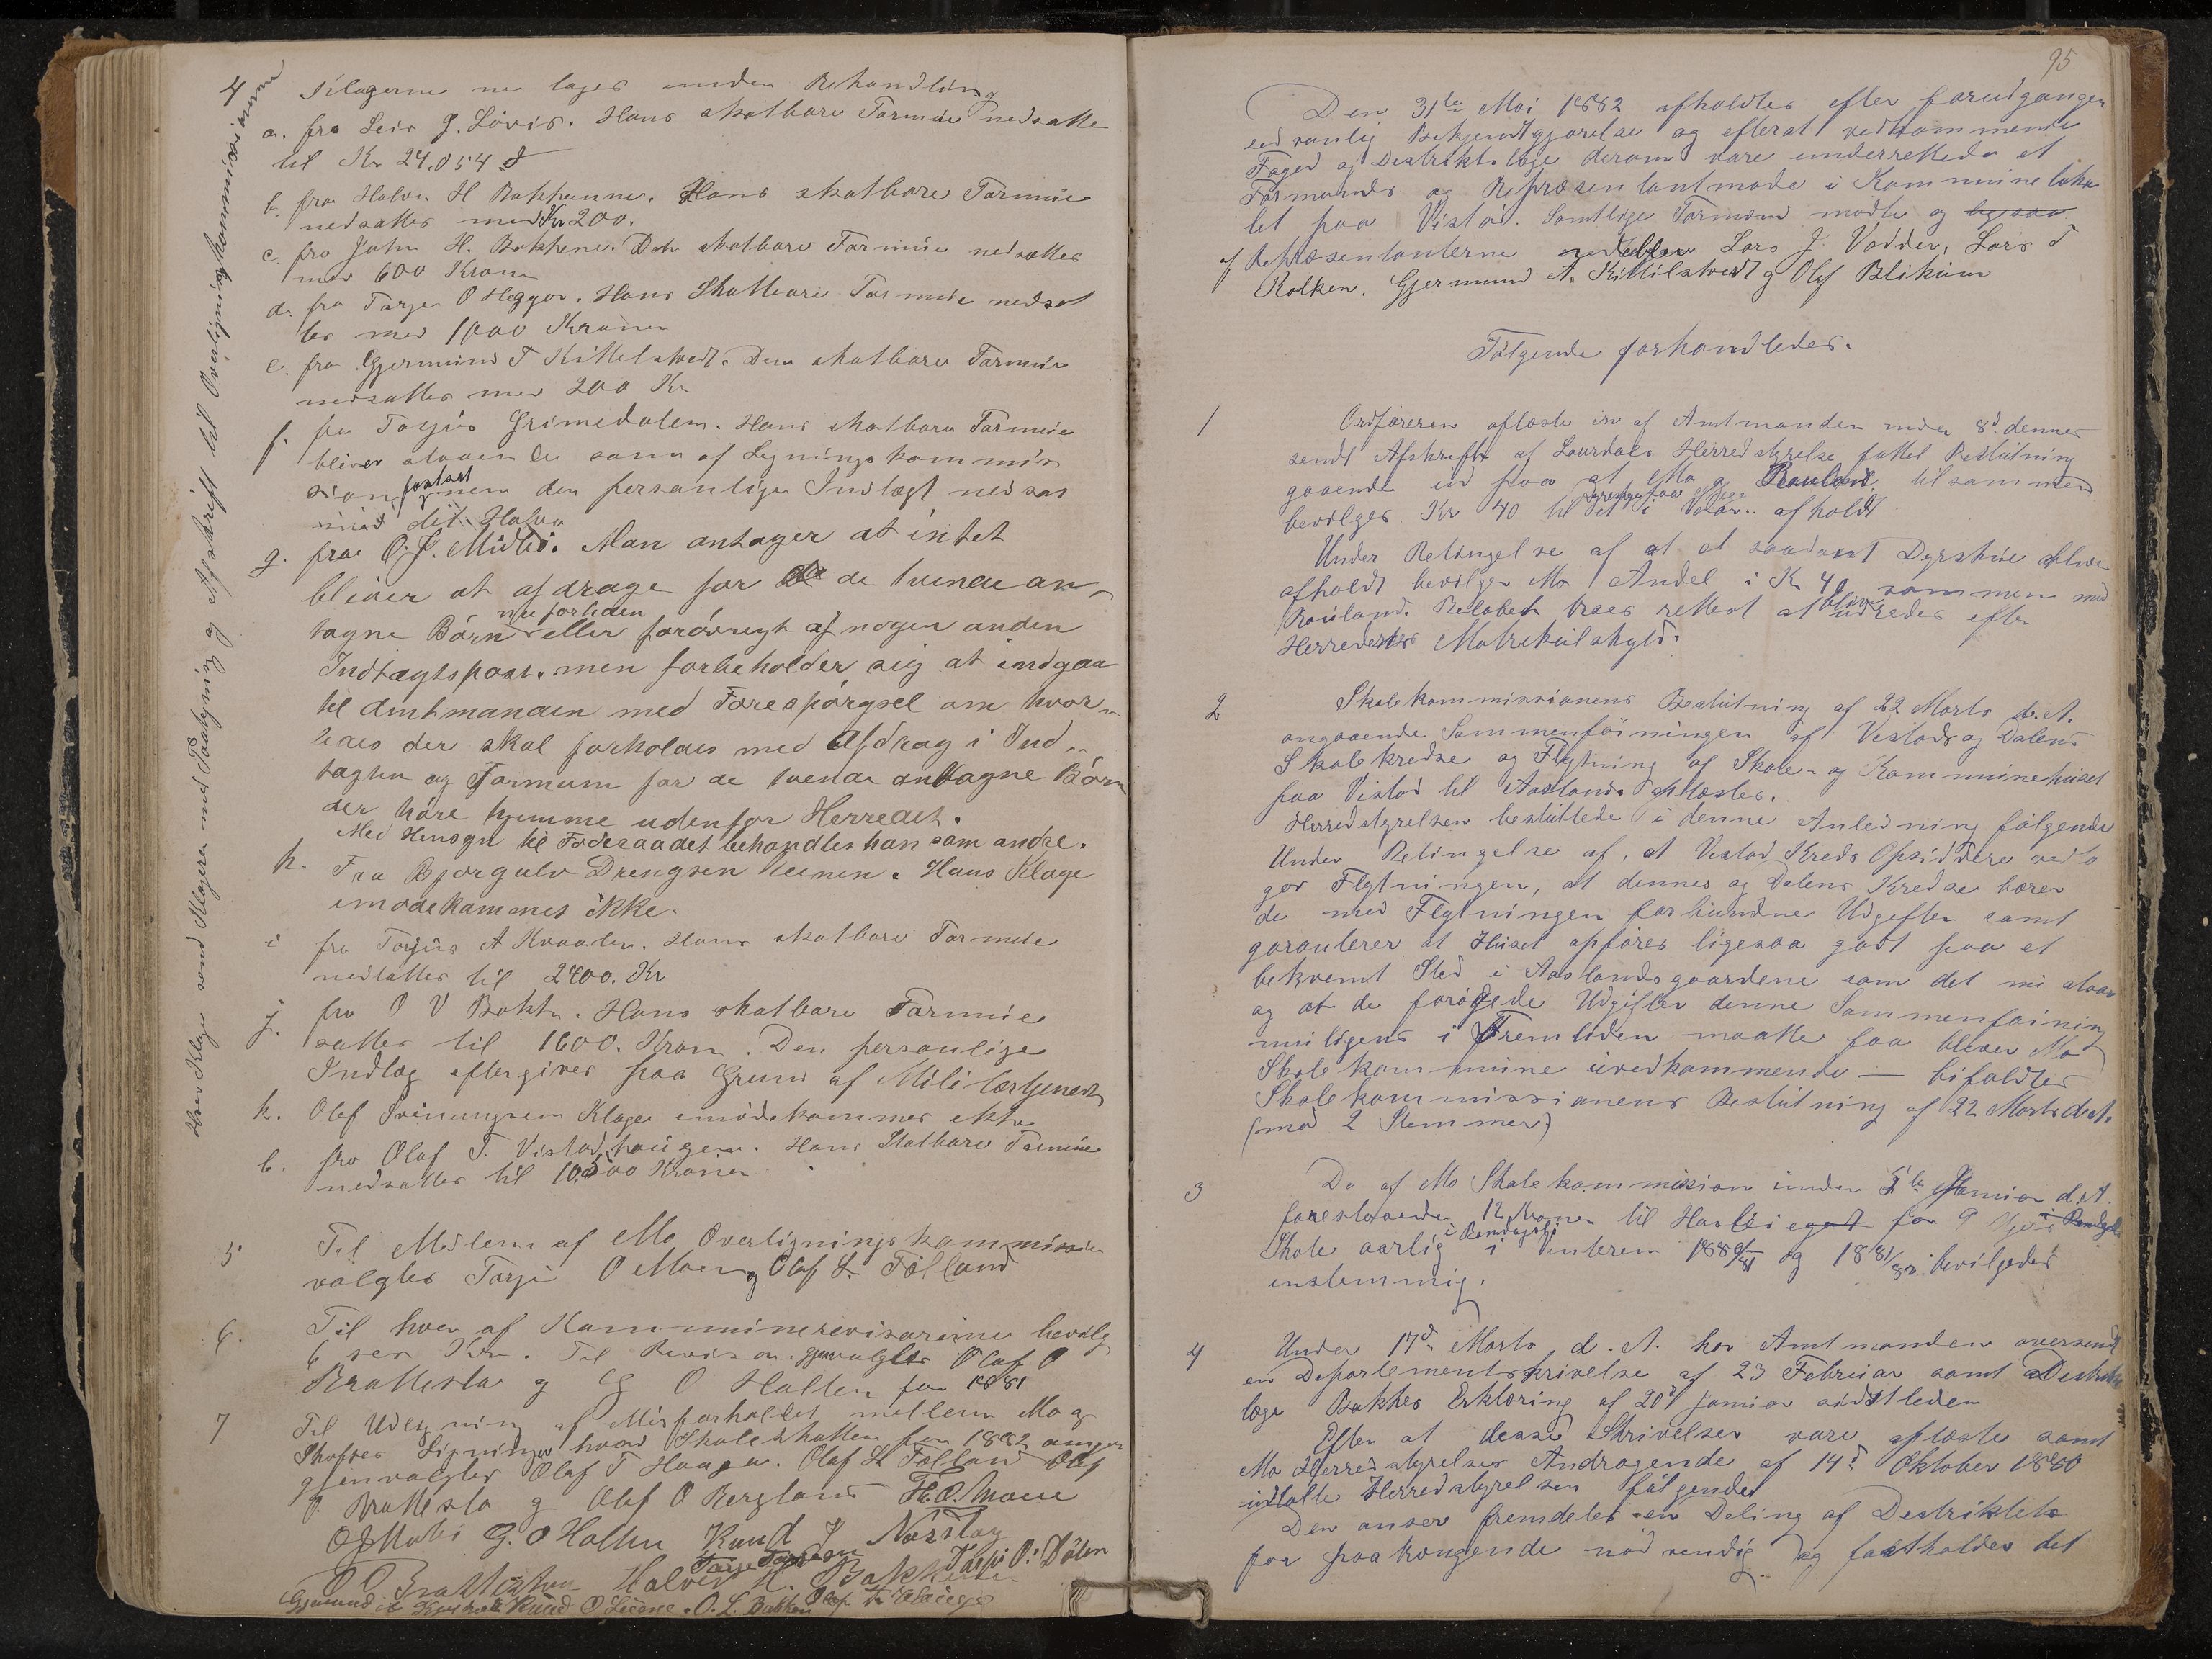 4 Klagerne ne toges under Behandling
a. fra Leiv J. Lövis. Hans skatbare Formue nedsatte
til Kr 24.054
b. fra Halvor H Bakkhunne. Hans skatbare Formue
nedsattes med Kr 200.
c. fra John H. Bakkene. Den skatbare Formue nedsattes
med 600 Kroner
d. fra Tarje O Heggov. Hans Skatbare Formue nedsat
tes med 1000 Kroner
e. fra Gjermund T Kittelstvedt. Den skatbare Formue
nedsattes med 200 Kr
f. fra Torjus Grimedalen. Hans skatbare Formue
bliver staaende som af Ligningskommis
sionen fastsat men den personlige Indtægt nedsæt
med det Halve
g. fra O. J. Midtbö. Man antager at intet
bliver at afdrage for de tvende an-
tagne Börn nu forliden eller forövrigt af nogen anden
Indtægtspost. men forbeholder sig at indgaa
til Amtmanden med Forespörgsel om hvor-
ledes der skal forholdes med Afdrag i Ind-
tægten og Formuen for de tvende antagne Börn
der höre hjemme udenfor Herredet.
Med Hensyn til Föderaadet behandles han som andre.
h. Fra Bjorgulv Drengsen Neenen. Hans Klage
imödekommes ikke.
i fra Torjus A Kvaalen. Hans skatbare Formue
nedsattes til 2400. Kr
j. fra O V Bakken. Hans skatbare Formue
sattes til 1600. Kron. Den personlige
Indtæg eftergives paa Grund af Militærtjeneste
k. Olaf Sveinungsen Klage imödekommes ikke
l. fra Olaf T. Vistadhaugen. Hans Skatbare Formue
nedsattes til 10,500 Kroner
5 Til Medlem af Mo Overligningskommission
valgtes Torje O Moen og Olaf L. Fölland
6. Til hver af Kommunerevisorerne bevilg
6 sex Kr. Til Revisor gjenvalgtes Olaf O
Brattestø og G O Holten for 1881
7 Til Udligning af Misforholdet mellem Mo og
Skafses Ligninger hvad Skoleskatten for 1882 angaar
gjenvalgtes Olaf T Haaga. Olaf H Fölland Olaf
O. Brattestø og Olaf O Bergland H. O. Moen
O J Mobö G. O Holten Knud J Norstog
Tarje Torjesen Torje O. Dölen
O O Brattestøe Halvor H. Bakkene
Knud O Lúdne. O. L. Bakken
Over Klage samt Klagen med Paategning og Afskrift til Overligningskommissionen
95
Den 31te Mai 1882 afholdtes efter forudgangen
sed vanlig Bekjendtgjörelse og efterat vedkommende
Foged og Distriktslæge derom vare underrettede et
Formands og Repræsentantmöde i Kommuneloka
let paa Vistad. Samtlige Formænd mödte og ligesaa
af Repræsentanterne Lars J. Vadder, Lars T
Kolken. Gjermund A. Kittilstvedt og Olaf Blikum
Fölgende forhandledes.
1 Ordföreren oplæste en af Amtmanden under 8d. dennes
sendt Afskrift af Lourdals Herredstyrelse fattet Beslutning
gaaende ud paa at Mo og Rauland tilsammen
bevilges Kr 40 til et i Vaar afholdt
Under Betingelse af at et saadant Dyrskue blive
afholdt bevilger Mo Andel i Kr 40 sammen med
Rauland. Belöbet bör rettest at blive udredes efter
Herredernes Matrikulskyld.
2 Skolekommissionens Beslutning af 22 Marts d. A.
angaaende Sammenföiningen af Vistads og Dalens
Skolekredse og Flytning af Skole- og Kommunehuset
paa Vistad til Aasland oplæstes.
Herredstyrelsen besluttede i denne Anledning fölgende
Under Betingelse af, at Vistad Kreds Opsiddere vedta
ger Flytningen, at dennes og Dalens Kredse bærer
de med Flytningen forbundne Udgifter samt
garanterer at Huset opföres ligesaa godt paa et
bekvemt Sted i Aaslandsgaardene som det nu staar
og at de forögede Udgifter denne Sammenföining
muligens i Fremtiden maatte faa bliver Mo
Skolekommune uvedkommende — bifaldtes
Skolekommissionens Beslutning af 22 Marts d.A.
(mod 2 Stemmer)
3 De af Mo Skolekommission under Januar d. A.
foreslaaede 12 Kroner til Husleie for
Skole aarlig i Vinteren 1880/81 og 1881/82 bevilgedes
enstemmig.
4 Under 17d. Marts d. A. har Amtmanden oversendt
en Departementsskrivelse af 23 Februar samt Distrikts
læge Bakkes Erklæring af 20d Januar sidstleden
Efter at disse Skrivelser vare oplæste samt
Mo Herredstyrelses Andragende af 14d. Oktober 1880
udtalte Herredstyrelsen fölgende
Den anser fremdeles en Deling af Distriktet
for paakrængende nödvendig og fastholder det